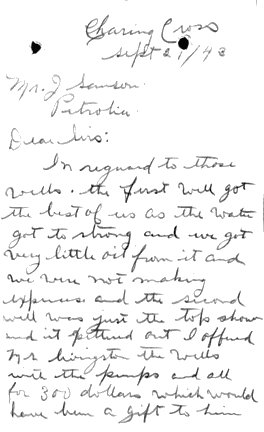 Charing Cross
Sept 29/43
Mr. J Samson
Petrolia.
Dear Sirs:
In regard to those
wells. the first well got
the best of us as the water
got to strong and we got
very little oil from it and
we were not making
expenses and the second
well was just the top show
and it petered out I offered
Mr Livingston the wells
with the pumps and all
for 300 dollars which would
have been a gift to him